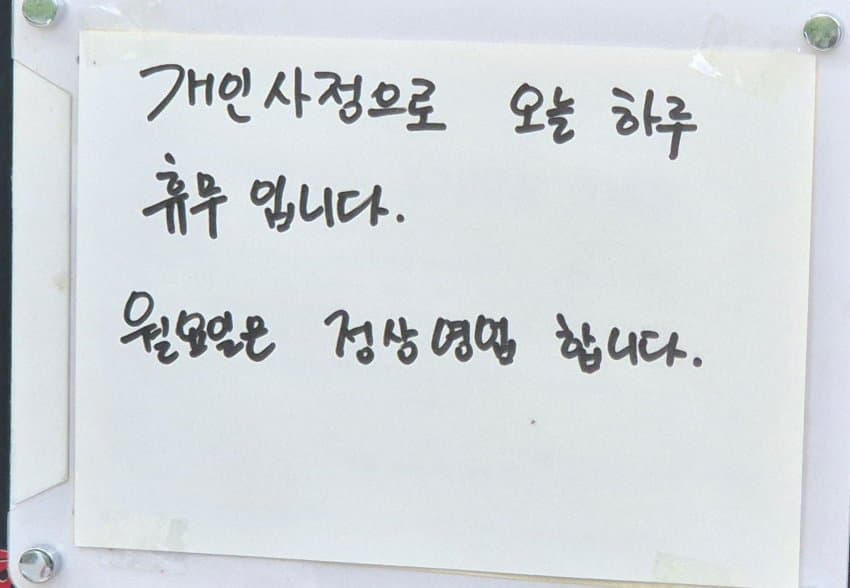 개인사정으로 오늘 하루
휴무 입니다.
월요일은 정상영업 합니다.